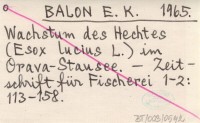 BALON E. K. 1965.
Wachstum des Hechtes
(Esox lucius L.) im
Opava-Stausee. – Zeit-
schrift für Fischerei 1-2:
113-158.